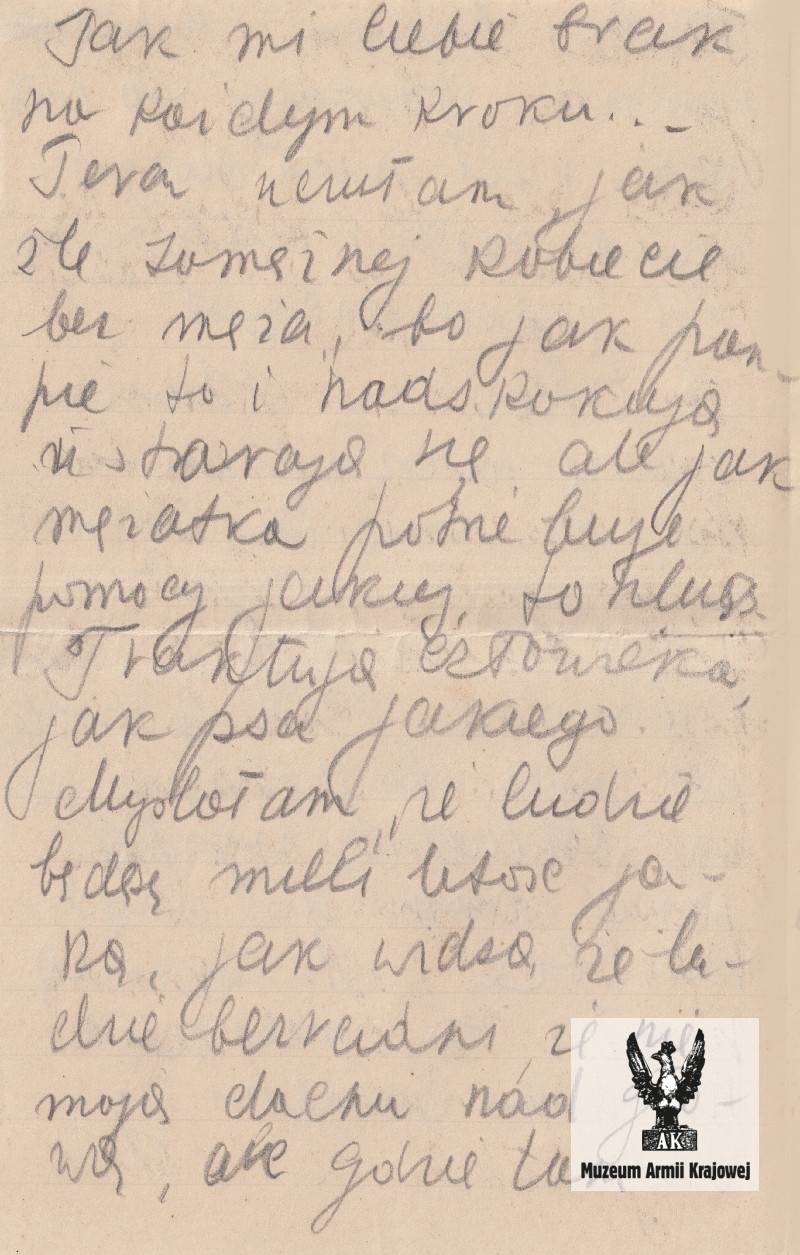 Jak mi Ciebie brak
na każdym kroku...
Teraz zrozum jak
źle zamężnej kobiecie
bez męża, bo jak pan-
nie to i nadskokują
i starają się ale jak
mężatka potrzebuje
pomocy jakiej, to
Traktują człowieka,
jak psa jakiego
Myślałam, że ludzie
będą mieli litość ja-
ką, jak widzą że lu-
dzie bezradni że nie
mają dachu nad gło-
wą, ale gdzie tam
AK
Muzeum Armii Krajowej